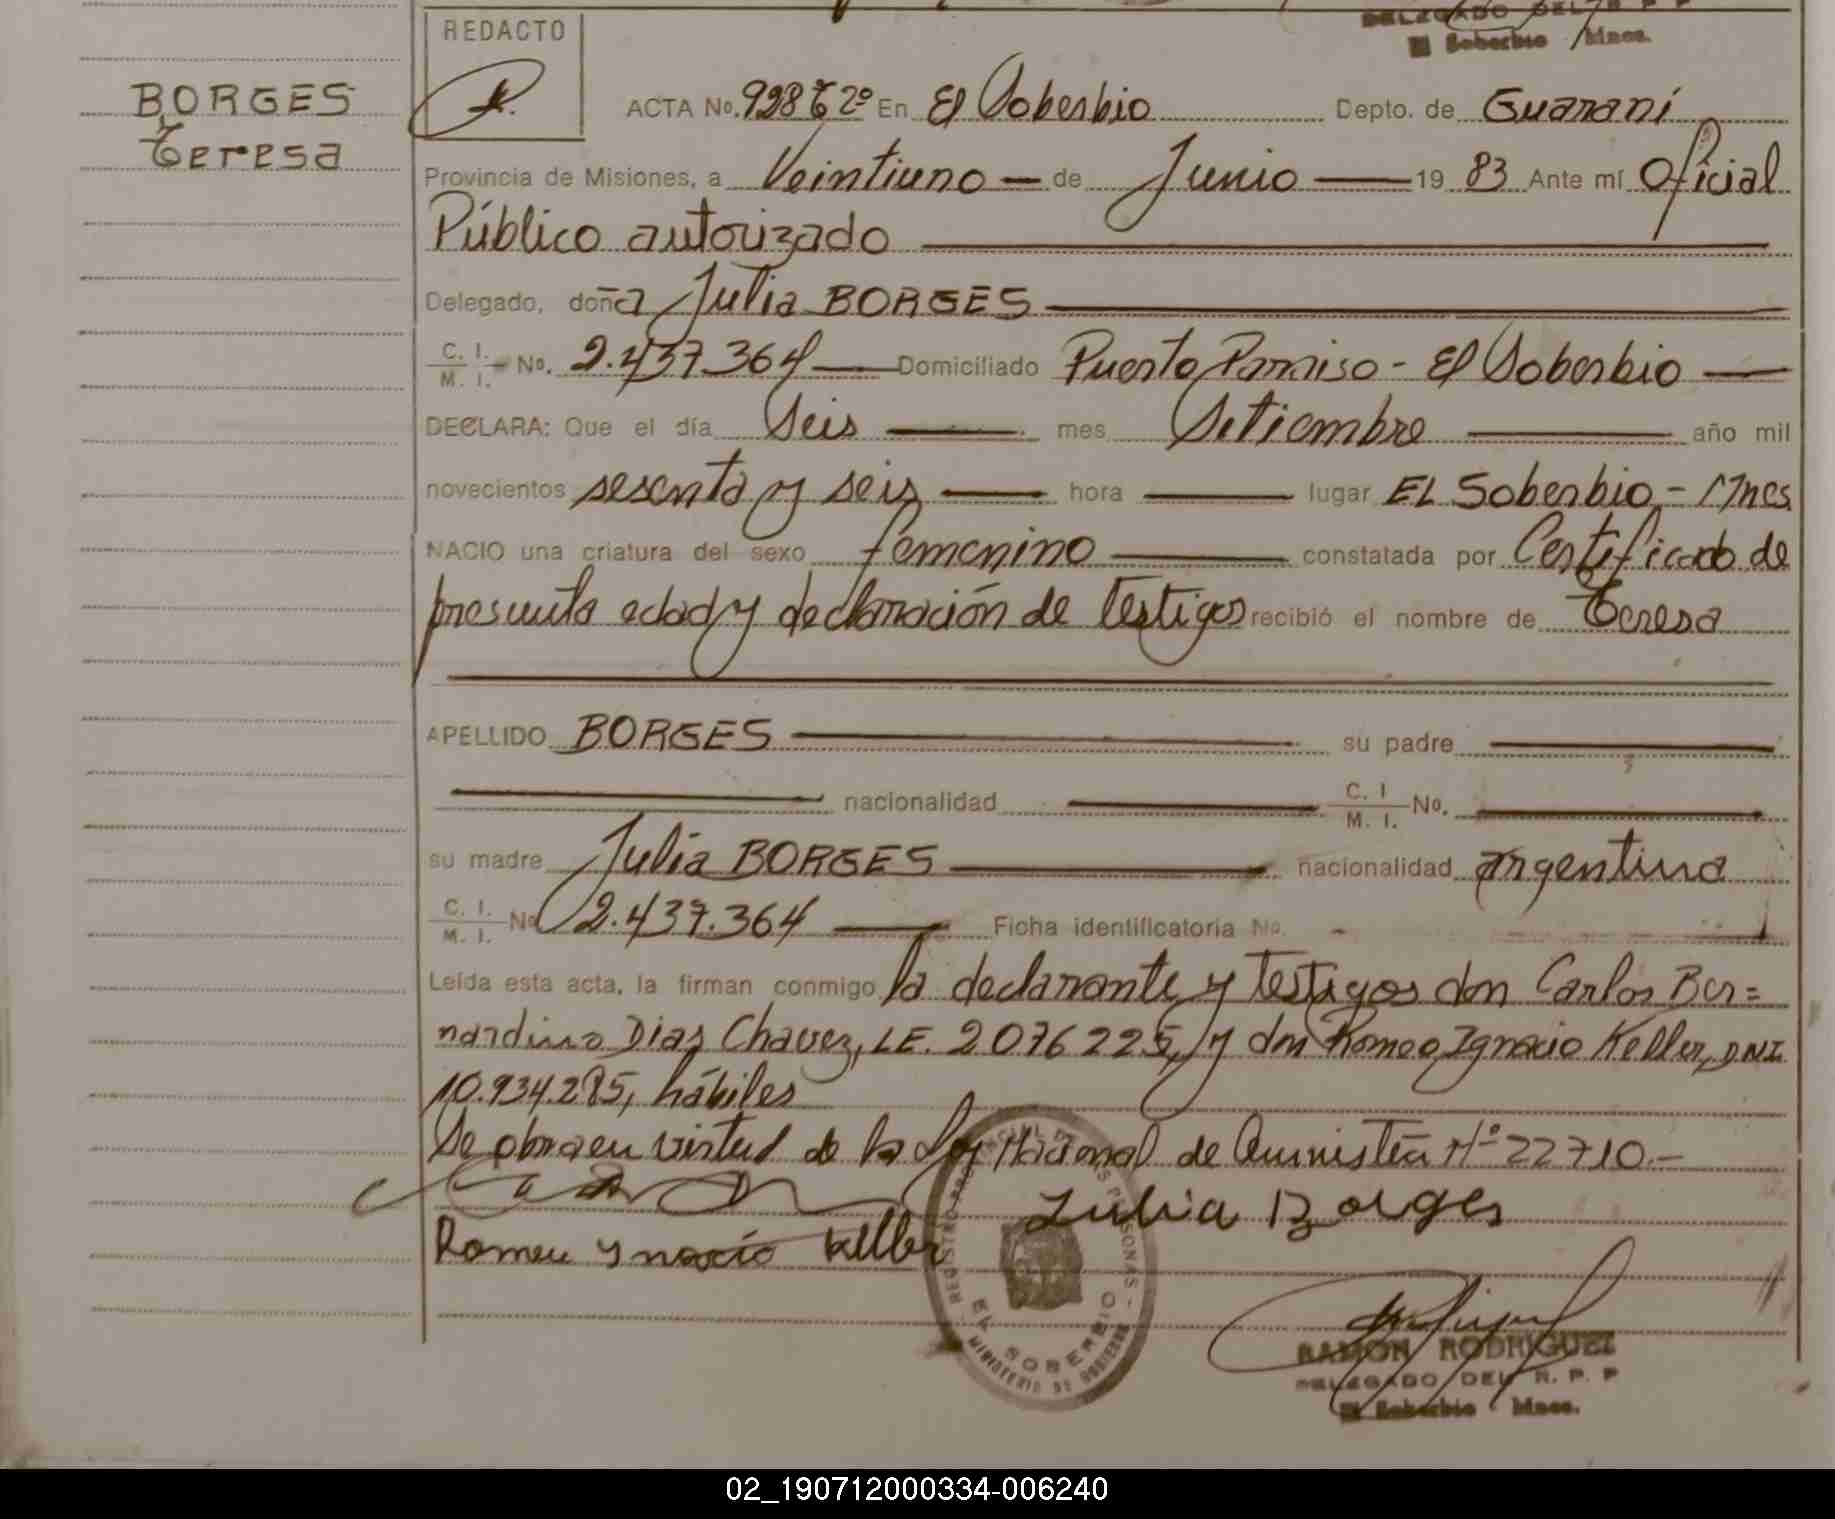 DELEGADO DEL R. P. P
El Soberbio Mnes.
REDACTO
BORGES
Teresa
ACTA No. 928 T 2º En El Soberbio Depto. de Guaraní
Provincia de Misiones, a Veintiuno de Junio 19 83 Ante mí Oficial
Público autorizado
Delegado, doña Julia BORGES
C. I. M. I. No. 2.437.364 Domiciliado Puerto Paraiso - El Soberbio
DECLARA: Que el día Seis mes Setiembre año mil
novecientos sesenta y seis hora lugar EL Soberbio - Mnes
NACIO una criatura del sexo femenino constatada por Certificado de
presunta edad y declaración de testigos recibió el nombre de Teresa
APELLIDO BORGES su padre
nacionalidad C. I M. I. No.
su madre Julia BORGES nacionalidad argentina
C. I. M. I. No 2.437.364 Ficha identificatoria No.
Leída esta acta, la firman conmigo la declarante y testigos don Carlos Ber=
nardino Dias Chavez, LE. 2076225, y don Romeo Ignacio Keller, DNI
10.934.285, hábiles
Se obra en virtud de la Ley Nacional de Amnistía Nº 22710.-
Julia Borges
Romeu Ynacio Keller
REGISTRO PROVINCIAL DE LAS PERSONAS -
EL SOBERBIO
MINISTERIO DE GOBIERNO
RAMON RODRIGUEZ
DELEGADO DEL R. P. P
El Soberbio Mnes.
02_190712000334-006240